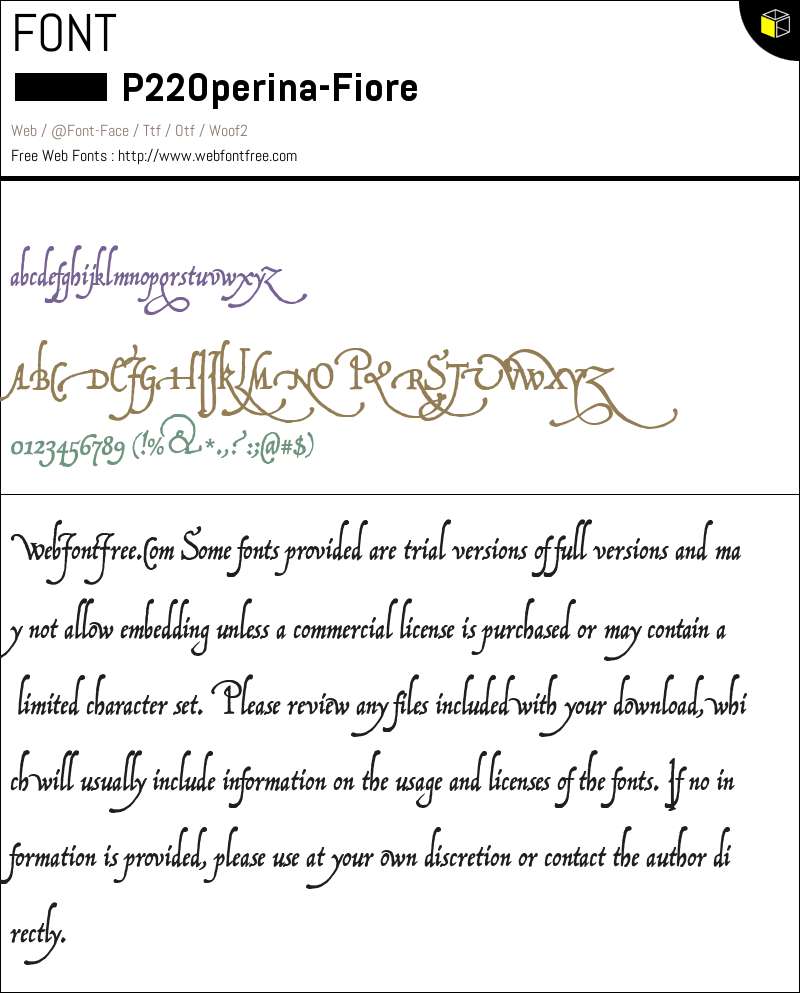 FONT
P22Operina-Fiore
Web / @Font-Face / Ttf / Otf / Woof2
Free Web Fonts : http://www.webfontfree.com
abcdefghijklmnopqrstuvwxyz
ABCDEFGHIJKLMNOPQRSTUVWXYZ
0123456789 (!%&*.,?:;@#$)
WebFontFree.Com Some fonts provided are trial versions of full versions and ma
y not allow embedding unless a commercial license is purchased or may contain a
limited character set. Please review any files included with your download, whi
ch will usually include information on the usage and licenses of the fonts. If no in
formation is provided, please use at your own discretion or contact the author di
rectly.